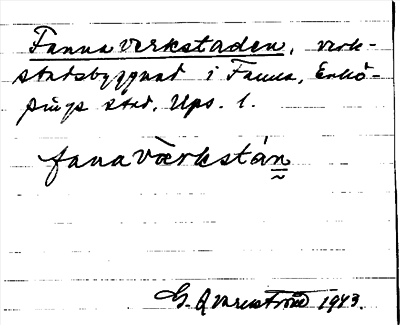 Fanna verkstaden, verk-
stadsbyggnad i Fanna, Enkö-
pings stad, Ups. l.
fanavàrkstán
G. Qvarnström 1943.